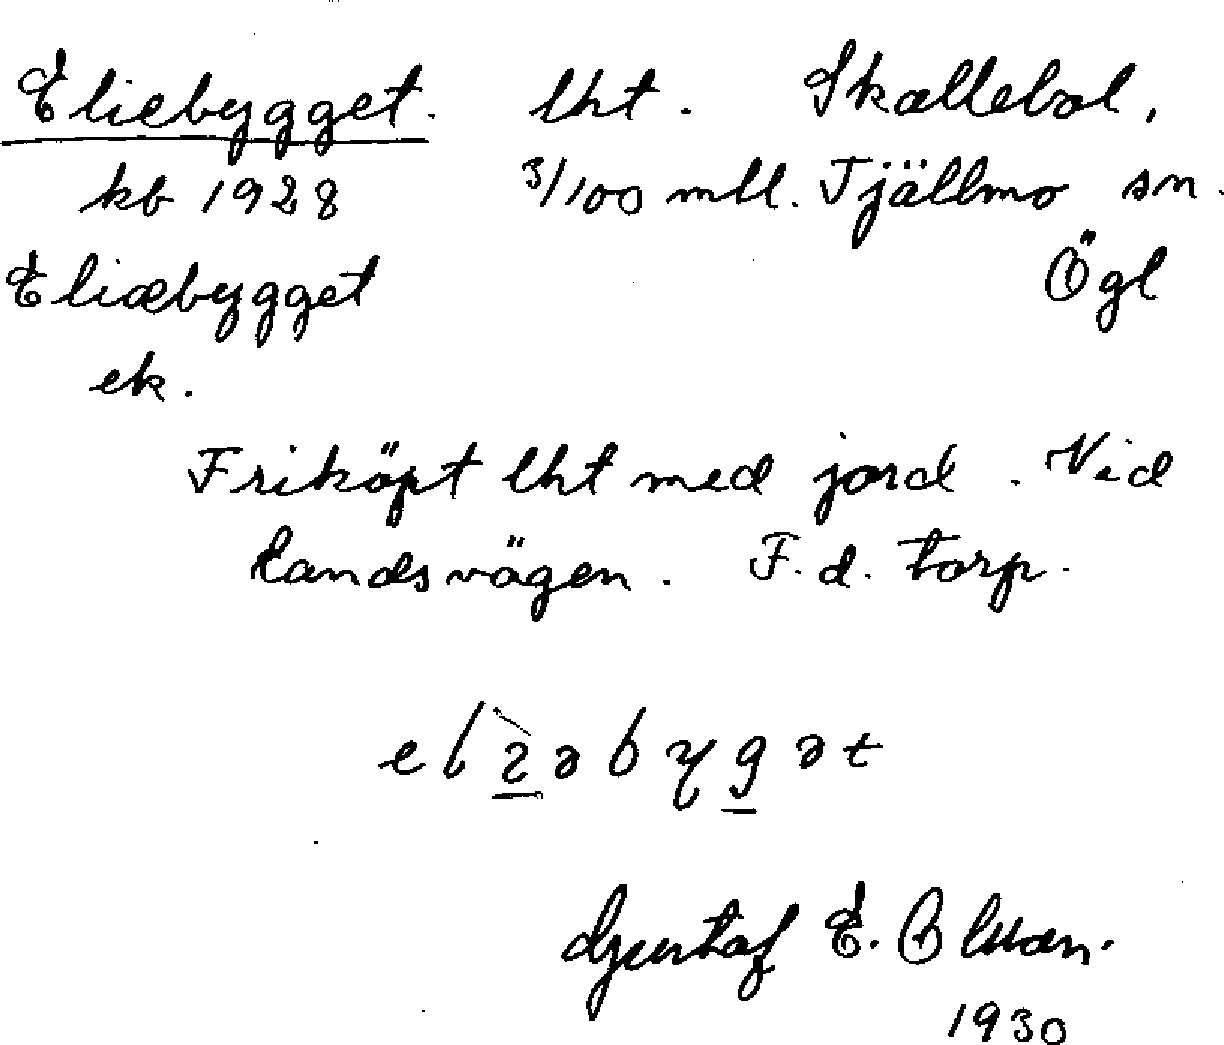 Eliebygget. lht. Skallebol,
kb 1928 3/100 mtl. Tjällmo sn.
Eliæbygget Ögl
ek.
Friköpt lht med jord. Vid
landsvägen. F. d. torp.
Gustaf E.
1930